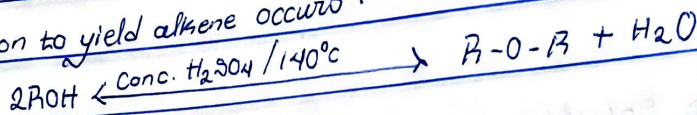 on to yield alkene occurs.
2ROH Conc. H₂SO₄/140°C R-O-R + H₂O